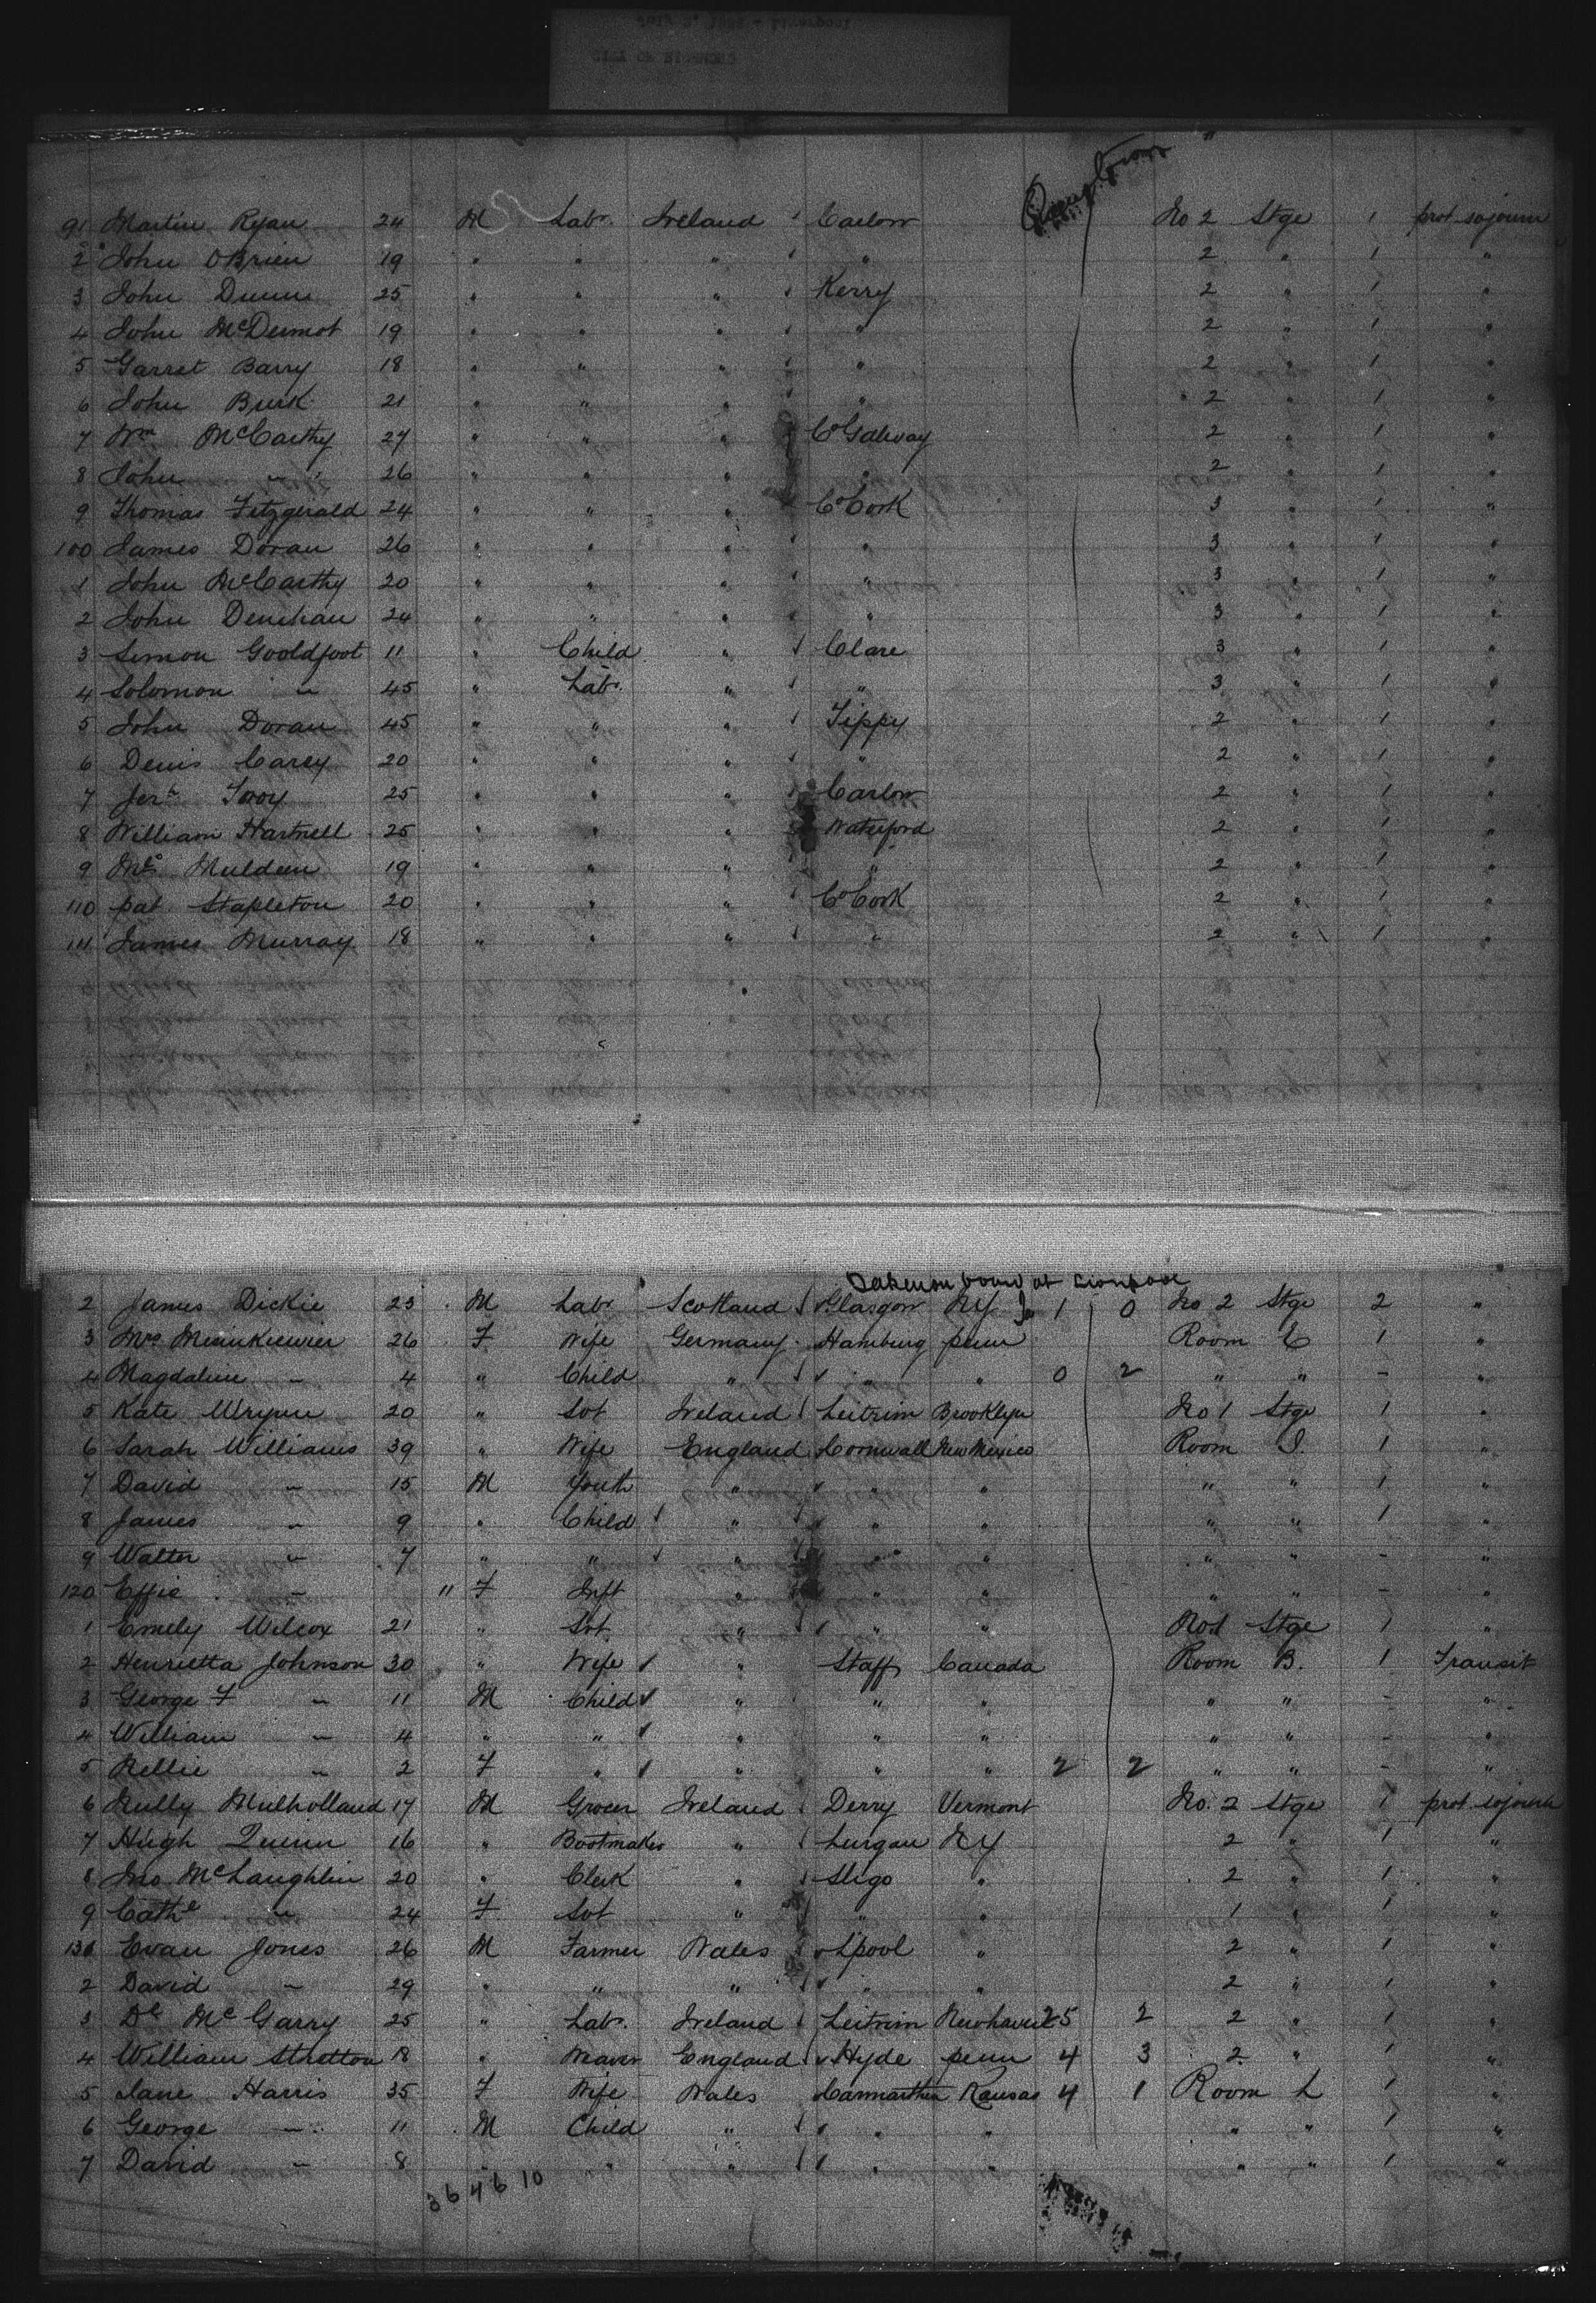 Queenstown "
91 Martin Ryan 24 M Labr Ireland Carlow No 2 Stge 1 prot sojourn
2 John OBrien 19 " " " " 2 " 1 "
3 John Dunn 25 " " " Kerry 2 " 1 "
4 John McDermot 19 " " " " 2 " 1 "
5 Garret Barry 18 " " " " 2 " 1 "
6 John Burk 21 " " " " 2 " 1 "
7 Wm McCarthy 27 " " " Co Galway 2 " 1 "
8 John " 26 " " " " 2 " 1 "
9 Thomas Fitzgerald 24 " " " Co Cork 3 " 1 "
100 James Doran 26 " " " " 3 " 1 "
1 John McCarthy 20 " " " " 3 " 1 "
2 John Denehan 24 " " " " 3 " 1 "
3 Simon Gooldfoot 11 " Child " Clare 3 " 1 "
4 Solomon " 45 " Labr " " 3 " 1 "
5 John Doran 45 " " " Tippy 2 " 1 "
6 Denis Carey 20 " " " " 2 " 1 "
7 Jerh 25 " " " Carlow 2 " 1 "
8 William Hartnell 25 " " " Waterford 2 " 1 "
9 Muldeen 19 " " " " 2 " 1 "
110 pat Stapleton 20 " " " Co Cork 2 " 1 "
111 James Murray 18 " " " " 2 " 1 "
Taken on board at
2 James Dickie 23 M Labr Scotland Glasgow NY 1 0 No 2 Stge 2 "
3 Mrs 26 F Wife Germany Hamburg penn Room E 1 "
4 Magdaline " 4 " Child " " " 0 2 " " - "
5 Kate Wrynn 20 " Svt Ireland Leitrim Brooklyn No 1 Stge 1 "
6 Sarah Williams 39 " Wife England Cornwall New Mexico Room I. 1 "
7 David " 15 M Youth " " " " " 1 "
8 James " 9 " Child " " " " " 1 "
9 Walter " 7 " " " " " " " - "
120 Effie " " F Inft " " " " " - "
1 Emely Wilcox 21 " Svt " " " No 1 Stge 1 "
2 Henrietta Johnson 30 " Wife " Staff Canada Room B. 1 Transit
3 George F " 11 M Child " " " " " - "
4 William " 4 " " " " " " " - "
5 Nellie " 2 F " " " " 2 2 " " - "
6 Mulholland 17 M Grocer Ireland Derry Vermont No. 2 Stge 1 prot sojourn
7 Hugh Quinn 16 " Bootmaker " Lurgan NY 2 " 1 "
8 Jno McLaughlin 20 " Clerk " Sligo " 2 " 1 "
9 Cathe " 24 F Svt " " " 1 " 1 "
130 Evan Jones 26 M Farmer Wales Lpool " 2 " 1 "
2 David " 29 " " " " " 2 " 1 "
3 McGarry 25 " Labr. Ireland Leitrim Newhaven 25 2 2 " 1 "
4 William Stretton 18 " Weaver England Hyde penn 4 3 2 " 1 "
5 Jane Harris 35 F Wife Wales Carmarthen Kansas 4 1 Room L 1 "
6 George " 11 M Child " " " " " 1 "
7 David " 8 " " " " " " " 1 "
3 6 4 6 10